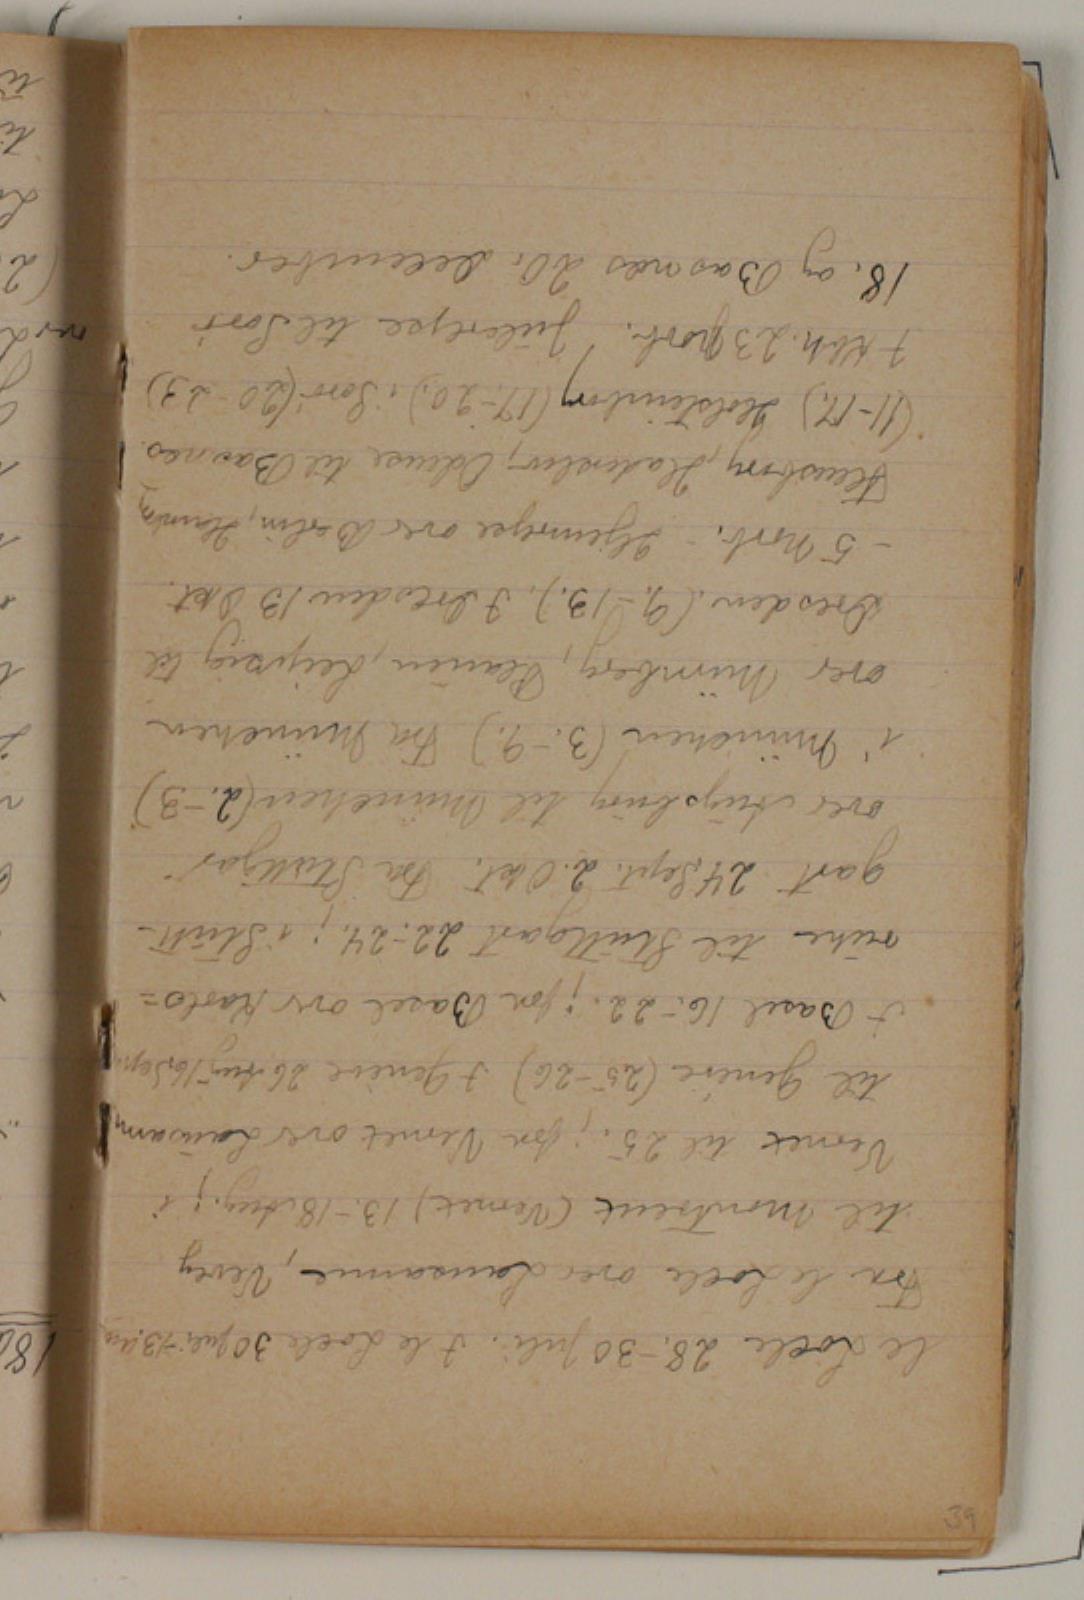 le Locle 28.-30 juli. I le Locle 30 juli-13.aug
Fra le Locle over Lausanne, Vevey
til Montreux (Vernex) 13.-18.Aug.; i
Vernex til 25.; fra Vernex over Lausanne
til Genève (25-26) I Genève 26.Aug-16.Sept.
I Basel 16.-22.; fra Basel over Karls=
ruhe til Stuttgart 22.-24.; i Stutt-
gart 24 Sept. 2. Okt. Fra Stuttgar
over Augsburg til München (2.-3)
i München (3.-9.) Fra München
over Nürnberg, Plauen, Leipzig til
Dresden (9.-13.). I Dresden 13 Okt.
- 5 Novb. - Hjemrejse over Berlin, Hamborg
Flensborg, Haderslev, Odense til Basnæs
(11-17.) Holsteinborg (17-20.) i Sorø (20-23)
I Kbh. 23 Novb. Julerejse til Sorø
18. og Basnæs 20. December.
39